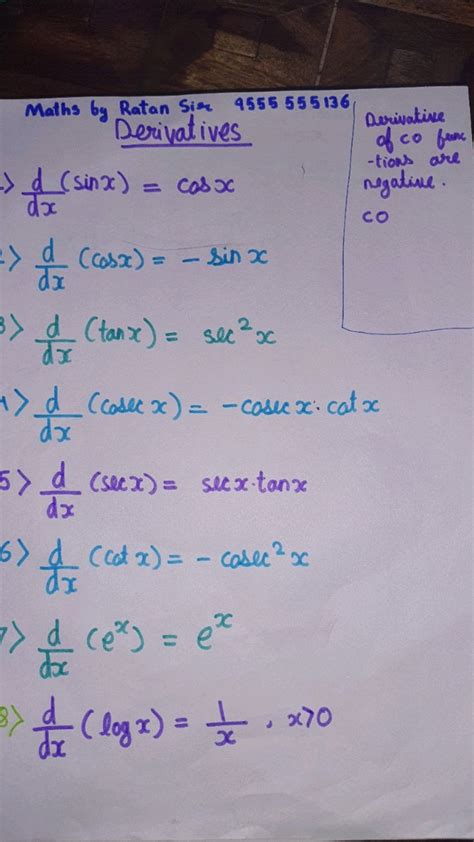 Maths by Ratan Sir 9555 555136
Derivatives
Derivative
of co func
-tions are
negative.
co
1> d/dx (sinx) = cosx
2> d/dx (cosx) = - sinx
3> d/dx (tanx) = sec²x
4> d/dx (cosec x) = -cosec x · cot x
5> d/dx (sec x) = secx·tanx
6> d/dx (cot x) = - cosec²x
7> d/dx (eˣ) = eˣ
8> d/dx (log x) = 1/x , x>0